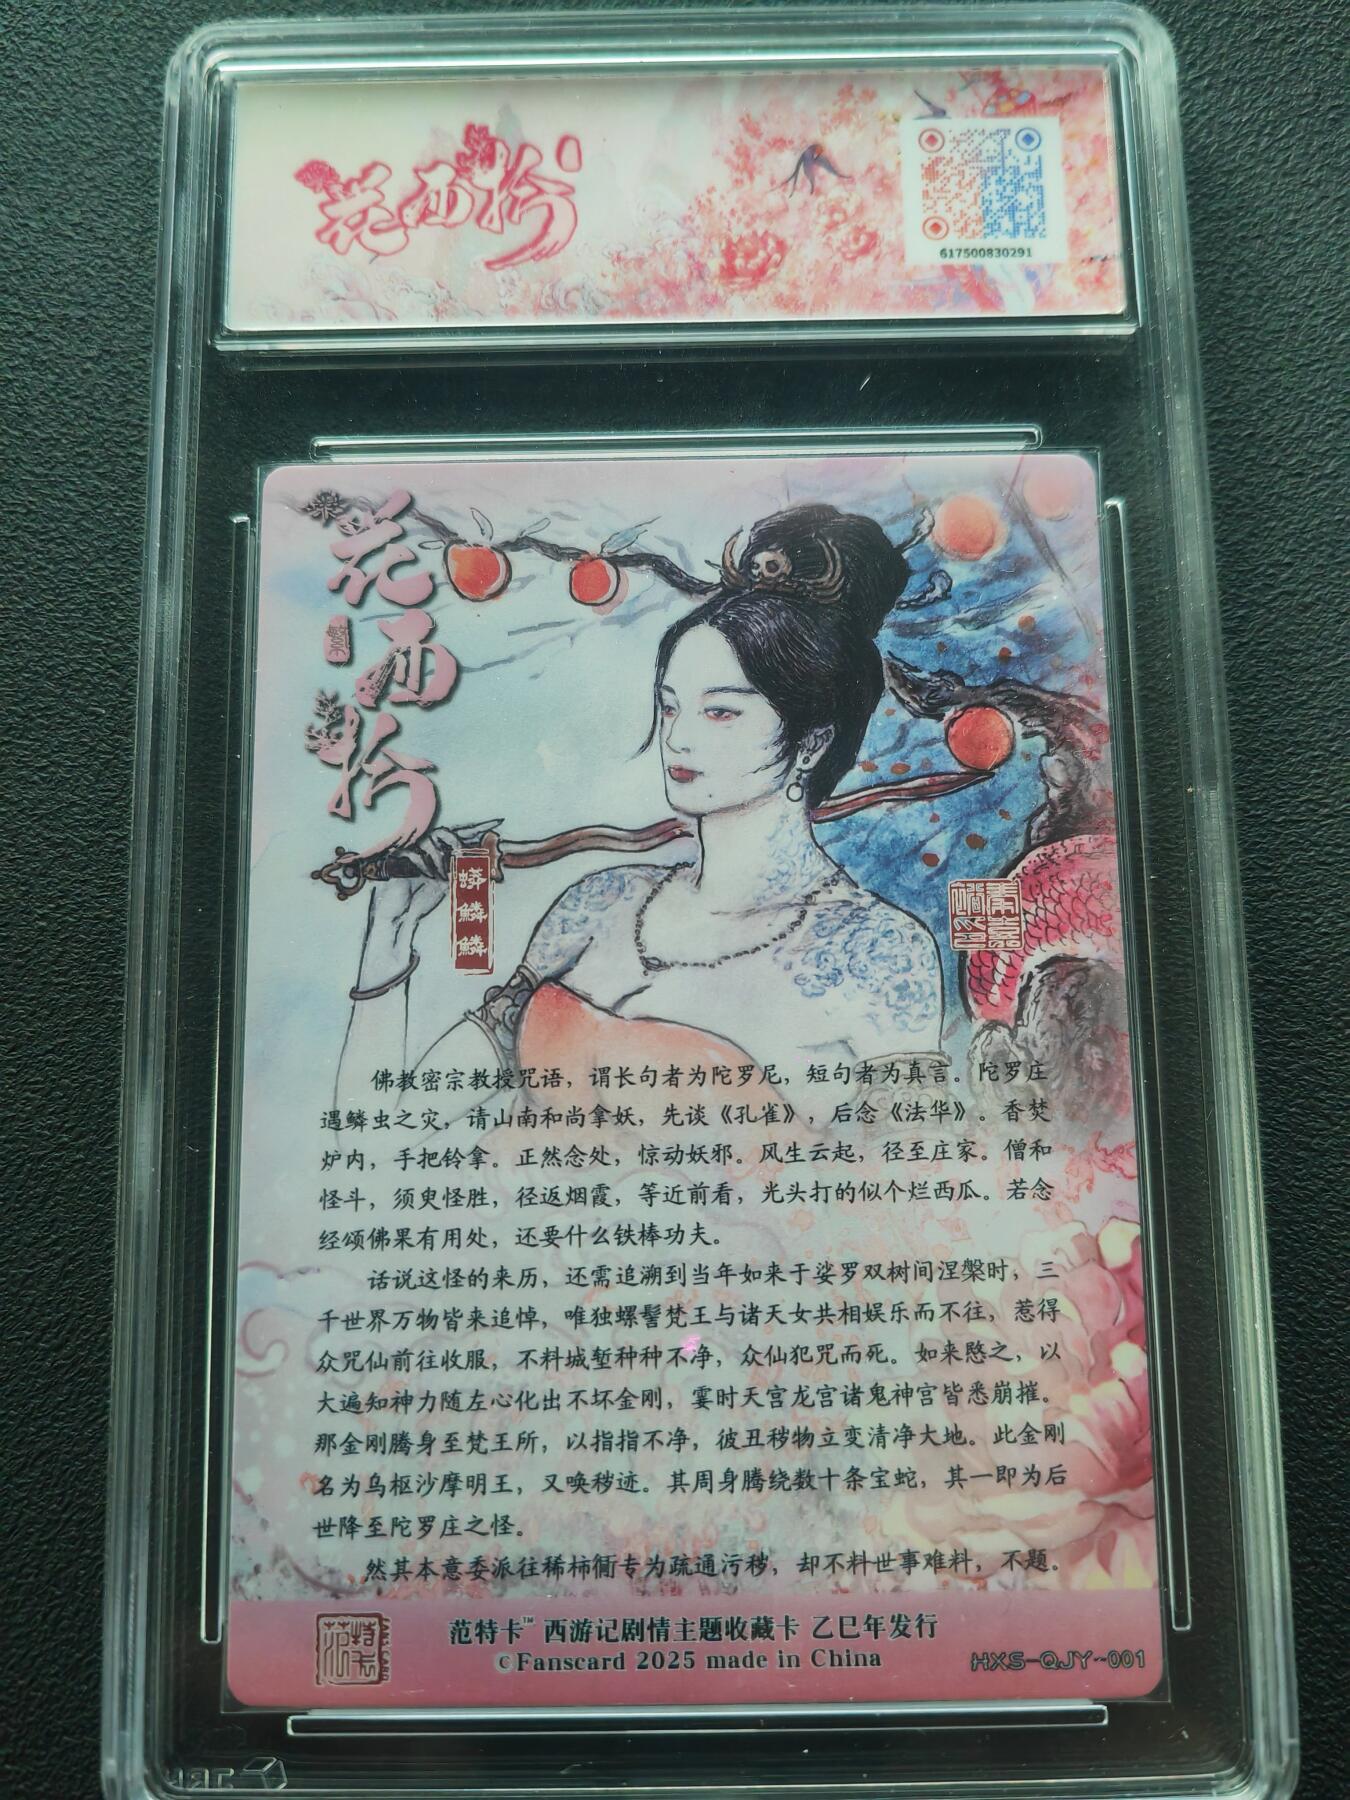 花西拾
617500830291
花西拾
蟒鳞鳞
佛教密宗教授咒语，谓长句者为陀罗尼，短句者为真言。陀罗庄
遇鳞虫之灾，请山南和尚拿妖，先谈《孔雀》，后念《法华》。香焚
炉内，手把铃拿。正然念处，惊动妖邪。风生云起，径至庄家。僧和
怪斗，须臾怪胜，径返烟霞，等近前看，光头打的似个烂西瓜。若念
经颂佛果有用处，还要什么铁棒功夫。
话说这怪的来历，还需追溯到当年如来于娑罗双树间涅槃时，三
千世界万物皆来追悼，唯独螺髻梵王与诸天女共相娱乐而不往，惹得
众咒仙前往收服，不料城堑种种不净，众仙犯咒而死。如来愍之，以
大遍知神力随左心化出不坏金刚，霎时天宫龙宫诸鬼神宫皆悉崩摧。
那金刚腾身至梵王所，以指指不净，彼丑秽物立变清净大地。此金刚
名为乌枢沙摩明王，又唤秽迹。其周身腾绕数十条宝蛇，其一即为后
世降至陀罗庄之怪。
然其本意委派往稀柿衕专为疏通污秽，却不料世事难料，不题。
范特卡™ 西游记剧情主题收藏卡 乙巳年发行
©Fanscard 2025 made in China
HXS-QJY-001